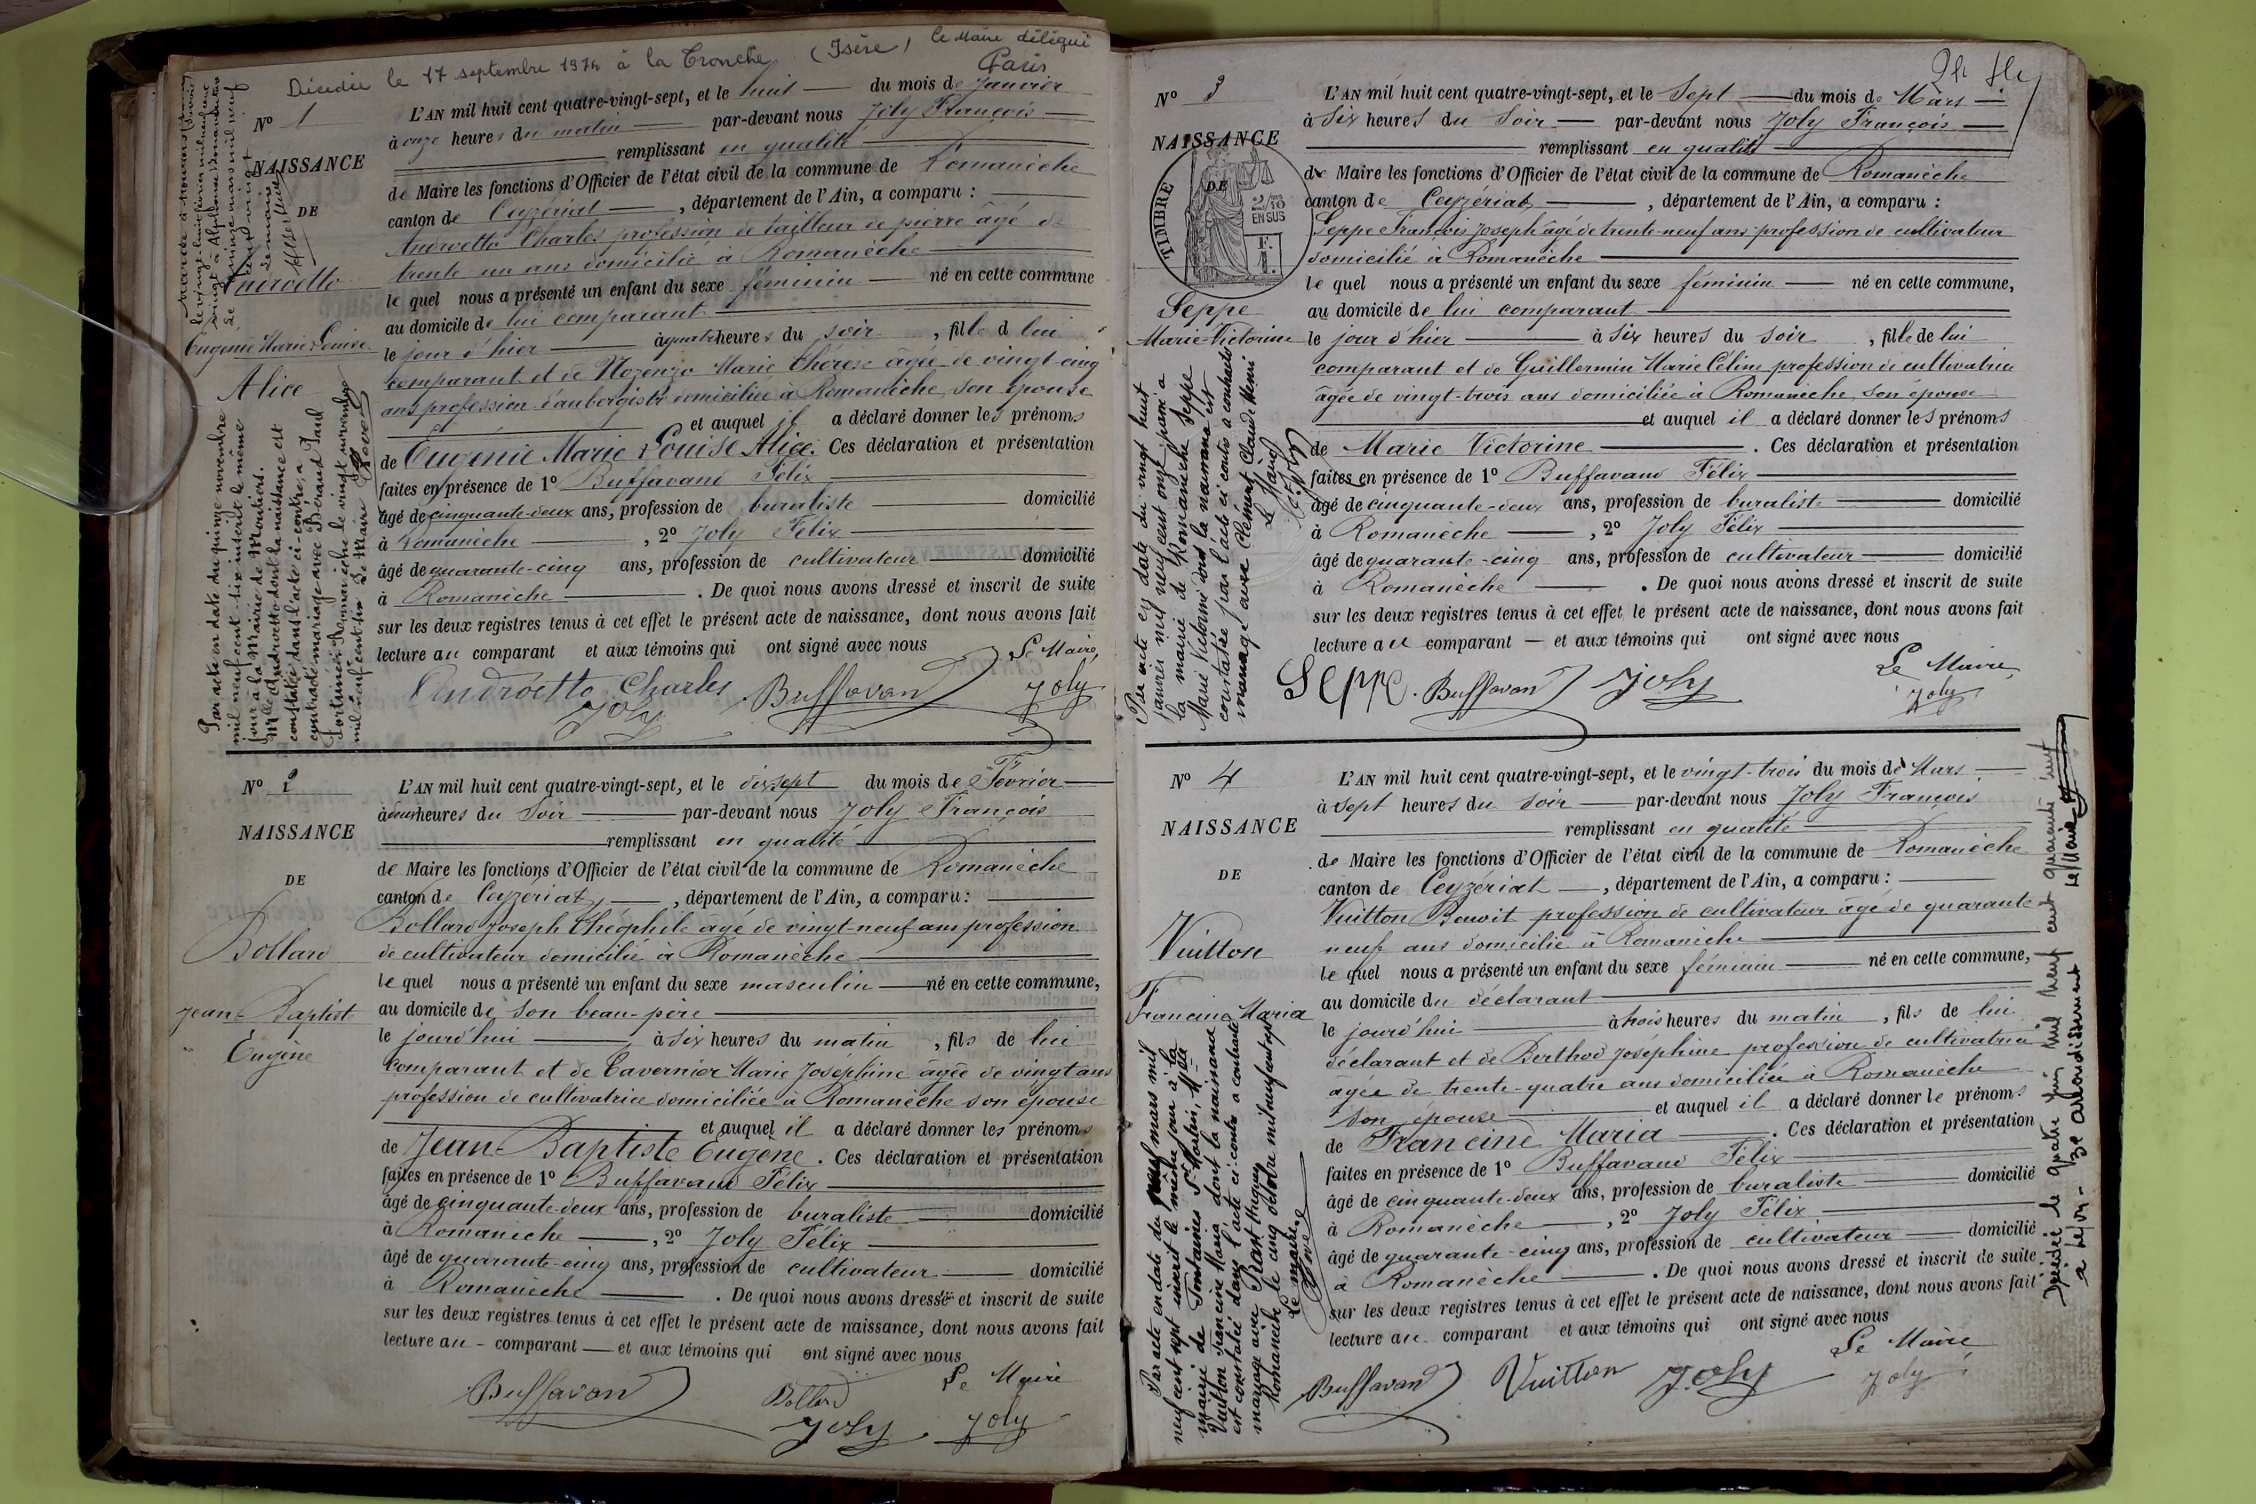 Décédée le 17 septembre 1974 à la Tronche (Isère) Le Maire délégué
Paris
N° 1
NAISSANCE
DE
Androetto
Eugénie Marie Louise
Alice
L'AN mil huit cent quatre-vingt-sept, et le huit du mois de Janvier
à onze heures du matin par-devant nous Joly François
remplissant en qualité
de Maire les fonctions d'Officier de l'état civil de la commune de Romanèche
canton de Ceyzériat, département de l'Ain, a comparu :
Androetto Charles profession de tailleur de pierre âgé de
trente un ans domicilié à Romanèche
le quel nous a présenté un enfant du sexe féminin né en cette commune
au domicile de lui comparant
le jour d'hier à quatre heures du soir, fille d lui
comparant et de Nozenzo Marie Thérèse âgée de vingt-cinq
ans profession d'aubergiste domiciliée à Romanèche, son épouse
et auquel il a déclaré donner les prénoms
de Eugénie Marie Louise Alice. Ces déclaration et présentation
faites en présence de 1° Buffavand Félix
âgé de cinquante-deux ans, profession de buraliste domicilié
à Romanèche, 2° Joly Félix
âgé de quarante-cinq ans, profession de cultivateur domicilié
à Romanèche. De quoi nous avons dressé et inscrit de suite
sur les deux registres tenus à cet effet le présent acte de naissance, dont nous avons fait
lecture au comparant et aux témoins qui ont signé avec nous
Le Maire,
Androetto Charles Buffavan Joly
Joly
Par acte en date du quinze novembre
mil neuf cent-dix inscrit le même
jour à la Mairie de Moutiers.
Mlle Androetto dont la naissance est
constatée dans l'acte ci-contre, a
contracté mariage avec Béraud Paul
Romanèche le vingt novembre
mil neuf cent dix Le Maire
N° 2
NAISSANCE
DE
Bollard
Jean-Baptist
Eugène
L'AN mil huit cent quatre-vingt-sept, et le dix sept du mois de Février
à deux heures du Soir par-devant nous Joly François
remplissant en qualité
de Maire les fonctions d'Officier de l'état civil de la commune de Romanèche
canton de Ceyzériat, département de l'Ain, a comparu :
Bollard Joseph Théophile âgé de vingt-neuf ans profession
de cultivateur domicilié à Romanèche
le quel nous a présenté un enfant du sexe masculin né en cette commune,
au domicile de son beau-père
le jourd'hui à six heures du matin, fils de lui
comparant et de Tavernier Marie Joséphine âgée de vingt ans
profession de cultivatrice domiciliée à Romanèche son épouse
et auquel il a déclaré donner les prénoms
de Jean-Baptiste Eugène. Ces déclaration et présentation
faites en présence de 1° Buffavand Félix
âgé de cinquante-deux ans, profession de buraliste domicilié
à Romanèche, 2° Joly Félix
âgé de quarante-cinq ans, profession de cultivateur domicilié
à Romanèche. De quoi nous avons dressé et inscrit de suite
sur les deux registres tenus à cet effet le présent acte de naissance, dont nous avons fait
lecture au - comparant et aux témoins qui ont signé avec nous
Le Maire
Buffavan Bollard
Joly Joly
N° 3
NAISSANCE
DE
TIMBRE
2/10
EN SUS
Seppe
Marie Victorine
L'AN mil huit cent quatre-vingt-sept, et le Sept du mois de Mars
à Six heures du Soir par-devant nous Joly François
remplissant en qualité
de Maire les fonctions d'Officier de l'état civil de la commune de Romanèche
canton de Ceyzériat, département de l'Ain, a comparu :
Seppe François Joseph âgé de trente-neuf ans profession de cultivateur
domicilié à Romanèche
le quel nous a présenté un enfant du sexe féminin né en cette commune,
au domicile de lui comparant
le jour d'hier à six heures du soir, fille de lui
comparant et de Guillermin Marie Céline profession de cultivatrice
âgée de vingt-trois ans domiciliée à Romanèche, son épouse
et auquel il a déclaré donner les prénoms
de Marie Victorine. Ces déclaration et présentation
faites en présence de 1° Buffavand Félix
âgé de cinquante-deux ans, profession de buraliste domicilié
à Romanèche, 2° Joly Félix
âgé de quarante-cinq ans, profession de cultivateur domicilié
à Romanèche. De quoi nous avons dressé et inscrit de suite
sur les deux registres tenus à cet effet le présent acte de naissance, dont nous avons fait
lecture au comparant et aux témoins qui ont signé avec nous
Le Maire,
SEppE. Buffavan Joly Joly
Par acte en date du vingt huit
janvier mil neuf cent onze passé à
la mairie de Romanèche Seppe
Marie Victorine dont la naissance est
constatée par l'acte ci-contre a contracté
mariage avec Clément Claude Denis
Le Maire
N° 4
NAISSANCE
DE
Vuitton
Francine Maria
L'AN mil huit cent quatre-vingt-sept, et le vingt-trois du mois de Mars
à sept heures du soir par-devant nous Joly François
remplissant en qualité
de Maire les fonctions d'Officier de l'état civil de la commune de Romanèche
canton de Ceyzériat, département de l'Ain, a comparu :
Vuitton Benoit profession de cultivateur âgé de quarante
neuf ans domicilié à Romanèche
le quel nous a présenté un enfant du sexe féminin né en cette commune,
au domicile du déclarant
le jourd'hui à trois heures du matin, fils de lui
déclarant et de Berthod Joséphine profession de cultivatrice
âgée de trente-quatre ans domiciliée à Romanèche
son épouse et auquel il a déclaré donner le prénoms
de Francine Maria. Ces déclaration et présentation
faites en présence de 1° Buffavand Félix
âgé de cinquante-deux ans, profession de buraliste domicilié
à Romanèche, 2° Joly Félix
âgé de quarante-cinq ans, profession de cultivateur domicilié
à Romanèche. De quoi nous avons dressé et inscrit de suite
sur les deux registres tenus à cet effet le présent acte de naissance, dont nous avons fait
lecture au comparant et aux témoins qui ont signé avec nous
Le Maire
Buffavan Vuitton Joly Joly
Par acte en date du neuf mars mil
neuf cent sept inscrit le même jour à la
mairie de Fontaines St Martin, Mlle
Vuitton Francine Maria dont la naissance
est constatée dans l'acte ci-contre a contracté
mariage avec
Romanèche le cinq octobre mil neuf cent sept
Le maire
Décédée le quatre juin mil neuf cent quarante huit
à Lyon - 3e arrondissement Le Maire